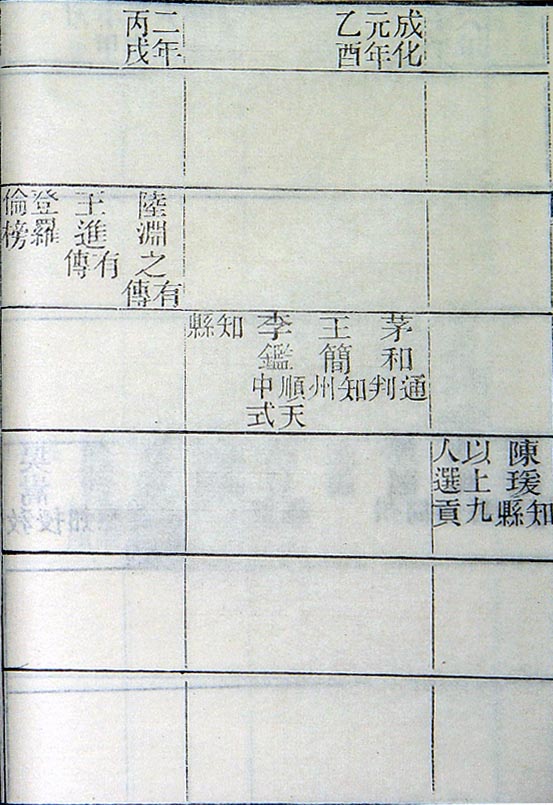 陳瑗知縣
以上九人選貢
成化元年乙酉
茅和通判
王簡知州
李鑑順天中式
知縣
二年丙戌
陸淵之有傳
王進有傳
登羅倫榜